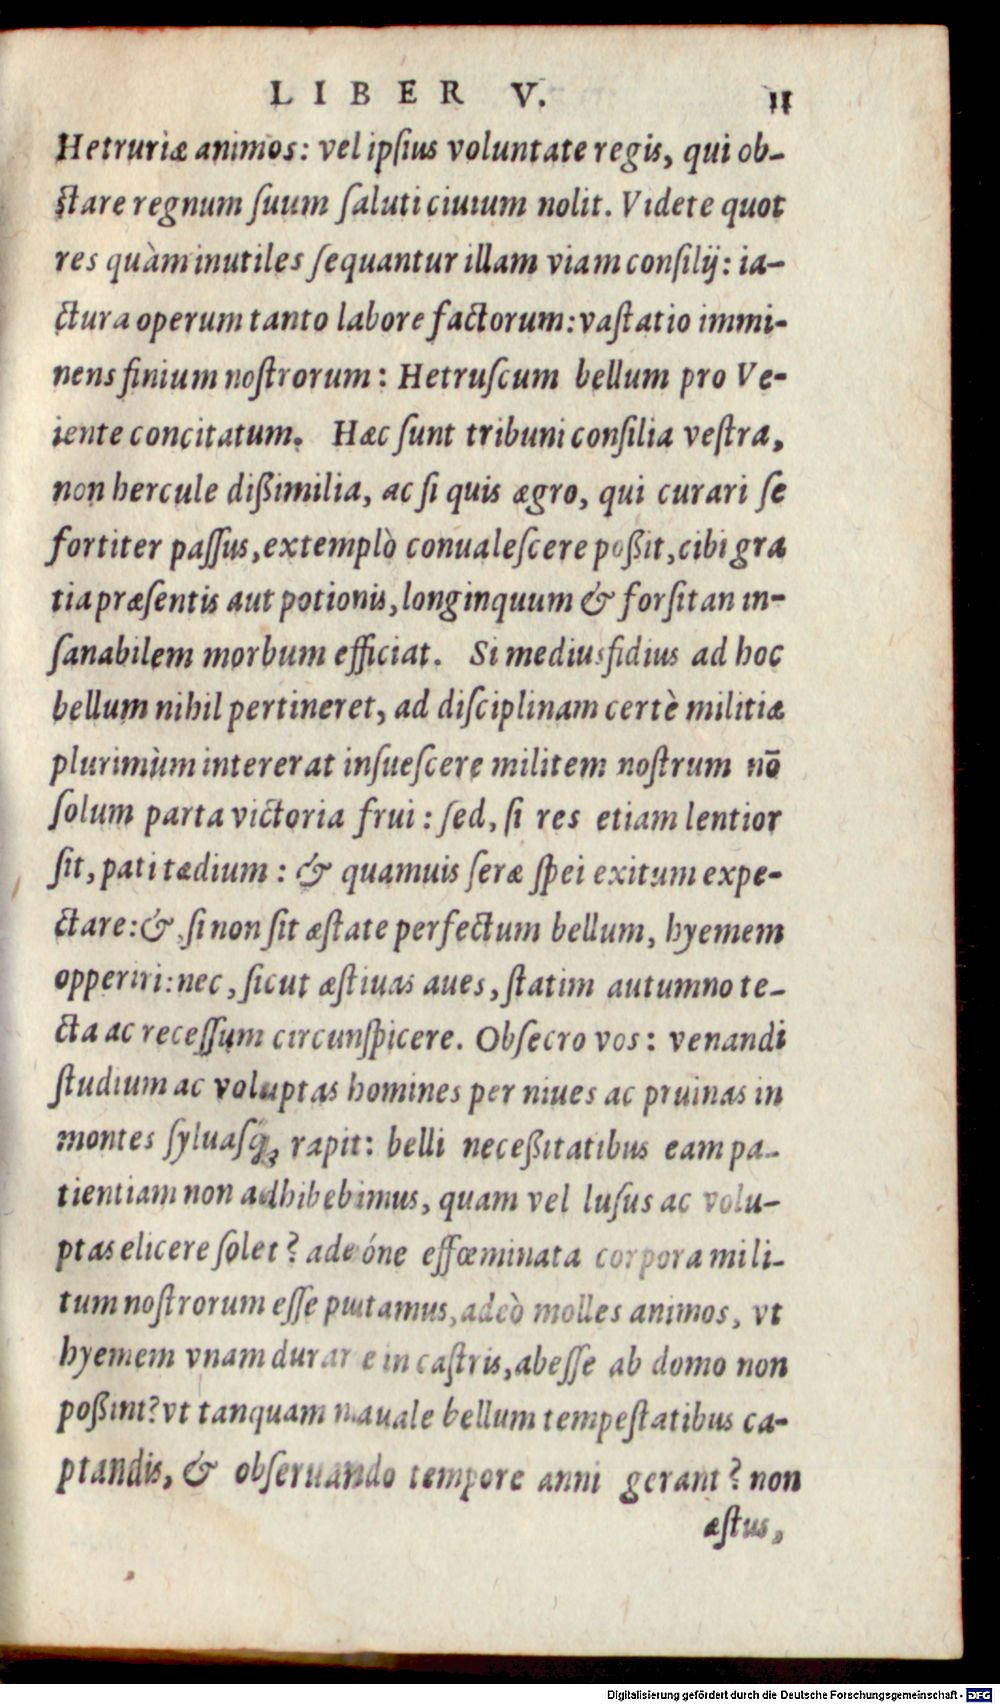 LIBER V. 11
Hetruriæ animos: vel ipſius voluntate regis, qui ob-
ſtare regnum ſuum ſaluti ciuium nolit. Videte quot
res quàm inutiles ſequantur illam viam conſilij: ia-
ctura operum tanto labore factorum: vaſtatio immi-
nens finium noſtrorum: Hetruſcum bellum pro Ve-
iente concitatum. Hæc ſunt tribuni conſilia veſtra,
non hercule dißimilia, ac ſi quis ægro, qui curari ſe
fortiter paſſus, extemplò conualeſcere poßit, cibi gra
tia præſentis aut potionis, longinquum & forſitan in-
ſanabilem morbum efficiat. Si mediusfidius ad hoc
bellum nihil pertineret, ad diſciplinam certè militiæ
plurimùm intererat inſueſcere militem noſtrum nō
ſolum parta victoria frui: ſed, ſi res etiam lentior
ſit, pati tædium: & quamuis ſeræ ſpei exitum expe-
ctare: & ſi non ſit æſtate perfectum bellum, hyemem
opperiri: nec, ſicut æſtiuas aues, ſtatim autumno te-
cta ac receſſum circunſpicere. Obſecro vos: venandi
ſtudium ac voluptas homines per niues ac pruinas in
montes ſyluaſq; rapit: belli neceßitatibus eam pa-
tientiam non adhibebimus, quam vel luſus ac volu-
ptas elicere ſolet? adeóne effœminata corpora mili-
tum noſtrorum eſſe putamus, adeò molles animos, vt
hyemem vnam durare in caſtris, abeſſe ab domo non
poßint? vt tanquam nauale bellum tempeſtatibus ca-
ptandis, & obſeruando tempore anni gerant? non
æſtus,
Digitalisierung gefördert durch die Deutsche Forschungsgemeinschaft - DFG